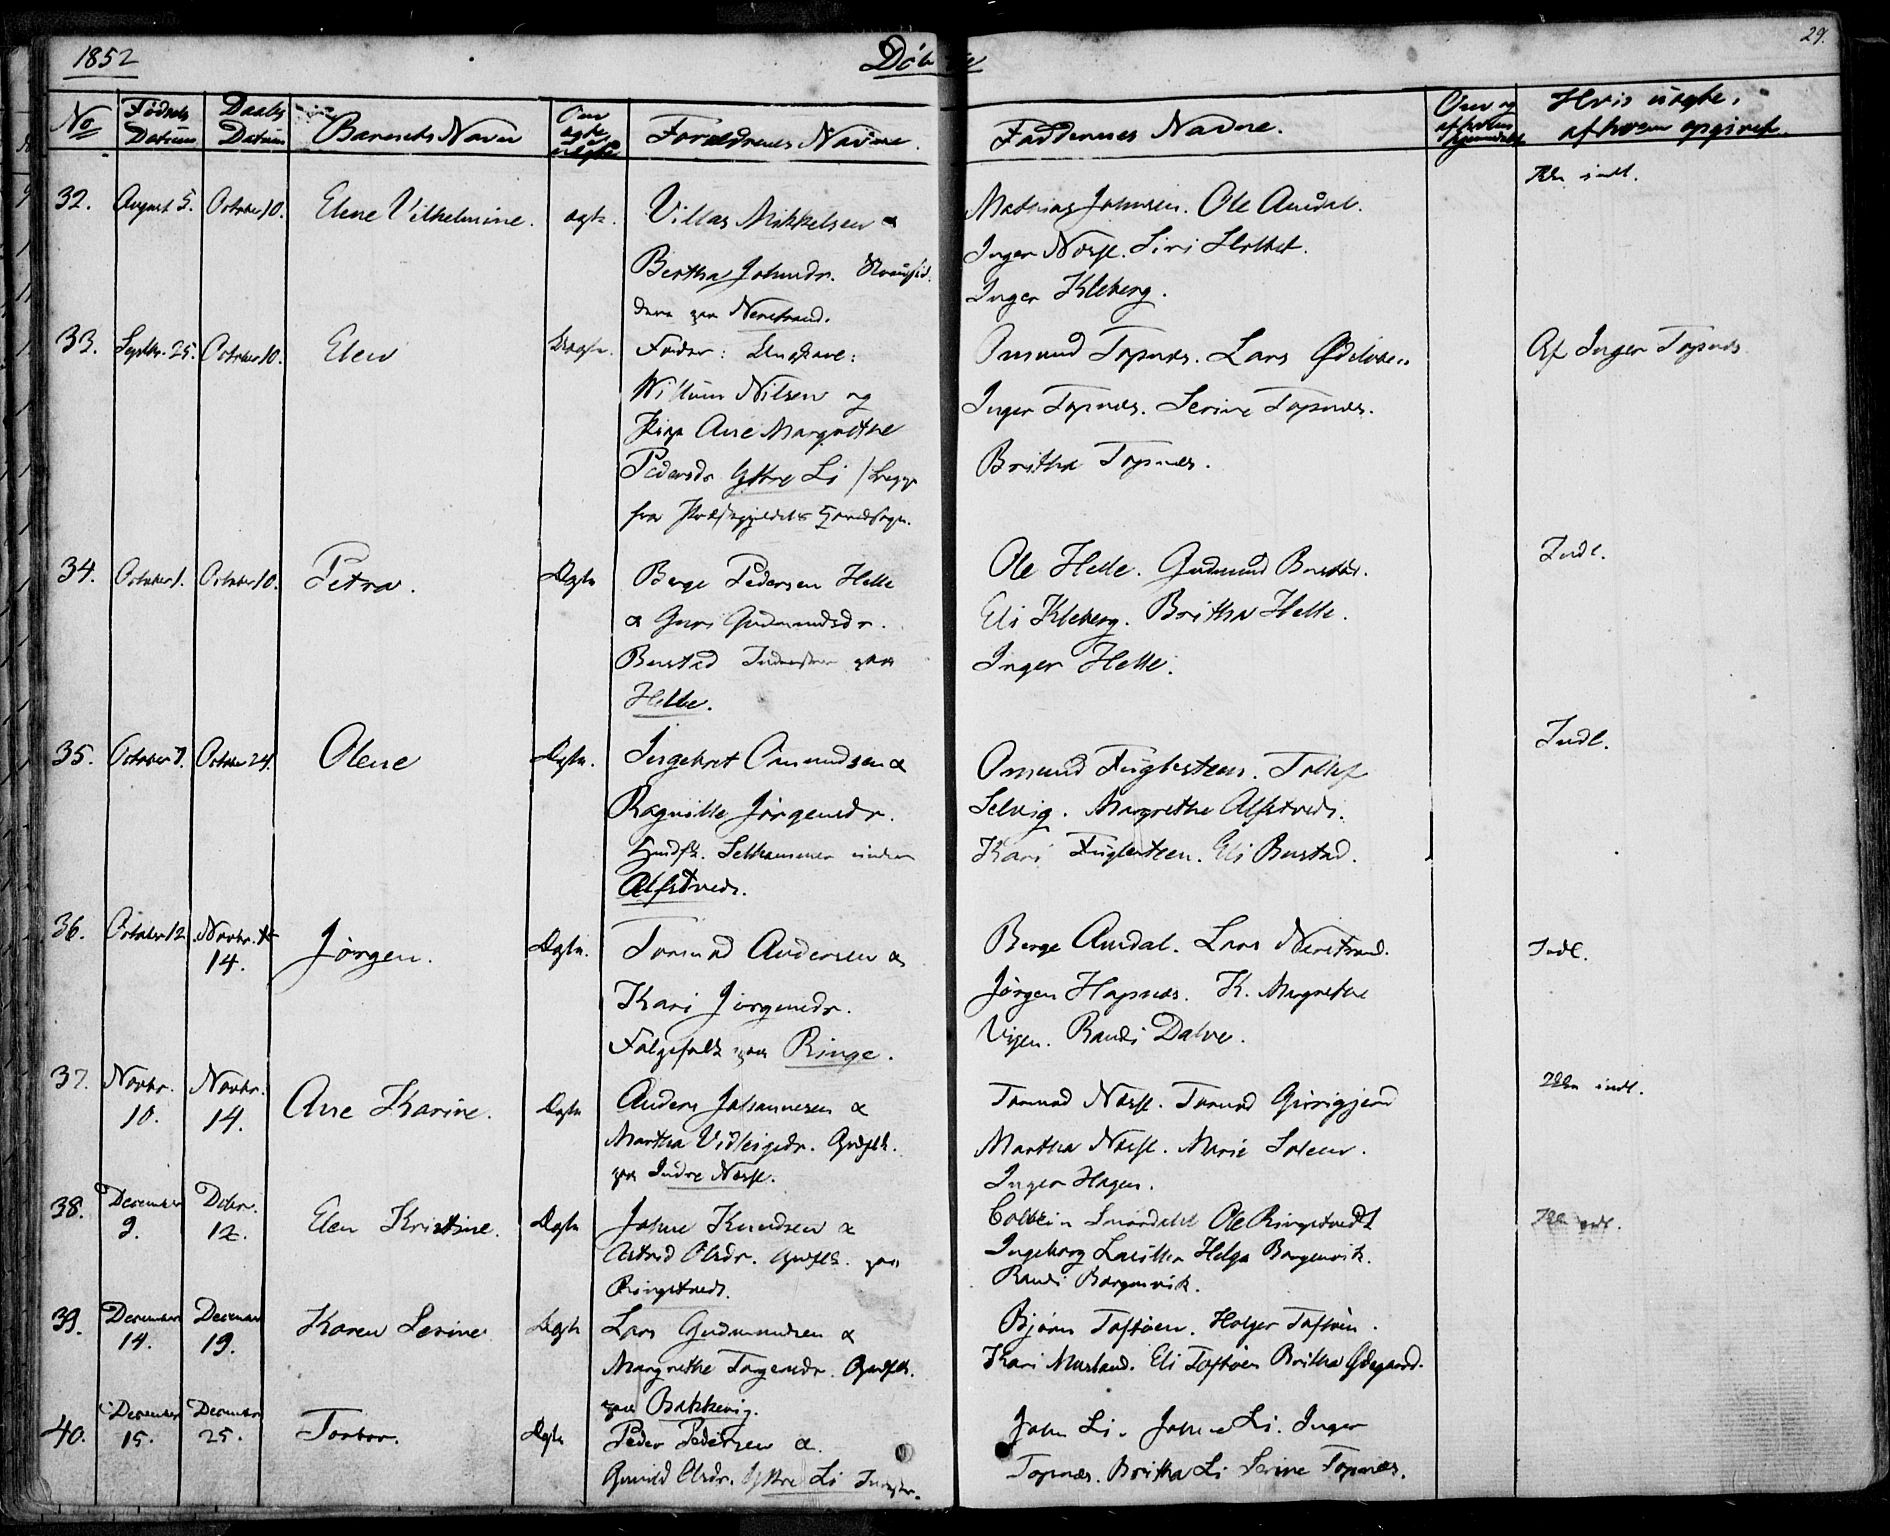 1852
Døbte
29.
No
Fødsels Datum
Daabs Datum
Barnets Navn
Om ægte uægte
Forældrenes Navne.
Faddernes Navne.
Om og af hvem
Hvis uægte, af hvem opgivet.
32. August 5. October 10. Elene Vilhelmine. ægte. Villas Mikkelsen &
Bertha Johnsdr.
paa Nerstrand.
Mathias Johnsen. Ole Amdal.
Inger Norse. Siri
Inger Kleberg.
indl.
33. Septbr. 25. October 10. Elen Uægte. Fader: Ungkarl:
Willum Nilsen og
Pige Ane Margrethe
Pedersdr Yttre Li / begge
fra Præstegjeldets Hovedsogn.
Omund Topnæs. Lars
Inger Topnæs. Serine Topnæs.
Britha Topnæs.
Af Inger Topnæs
34. October 1. October 10. Petra. Ægte Berge Pedersen Helle
& Guri Gudmundsdr.
Busted paa
Helle.
Ole Helle. Gudmund Busted.
Eli Kleberg. Britha Helle.
Inger Helle.
Indl.
35. October 7. October 24. Olene Ægte. Ingebret Omundsen &
Ragnille Jørgensdr.
under
Alfstveds.
Omund Fuglesteen. Tollef
Selvig. Margrethe Alfstveds.
Kari Fuglesteen. Eli Bustad.
Indl.
36. October 12 Novbr. 14. Jørgen. Ægte. Tormod Andersen &
Kari Jørgensdr.
Folgefolk paa Ringe.
Berge Amdal. Lars Nerstrand.
Jørgen Hapnes. K. Margrethe
Vigen. Randi Dalve.
Indl.
37. Novbr. 10. Novbr. 14. Ane Karine. Ægte Anders Johannesen &
Martha Vidleigsdr. Grdflk.
paa Indre Norse.
Tormod Norse. Tormod
Martha Norse. Marie
Inger Hagen.
indl.
38. December 9. Decbr. 12. Elen Kristine. Ægte Johne Knudsen &
Astrid Olsdr. Grdflk. paa
Ringstveds.
Ole Ringstvedt
Ingeborg Helga Borgenvik.
Randi Borgenvik.
39. December 14. December 19. Karen Serine Ægte Lars Gudmundsen &
Margrethe Torgersdr. Grdflk.
paa Bakkevig.
Bjørn Toftøen. Holger Toftøen.
Kari Musland. Eli Toftøen Britha Ødegaard.
40. December 15. December 25. Torbor. Ægte Peder Pedersen &
Gunild Olsdr. Yttre Li
John Li. Johne Li. Inger
Topnæs. Britha Li Serine Topnæs.